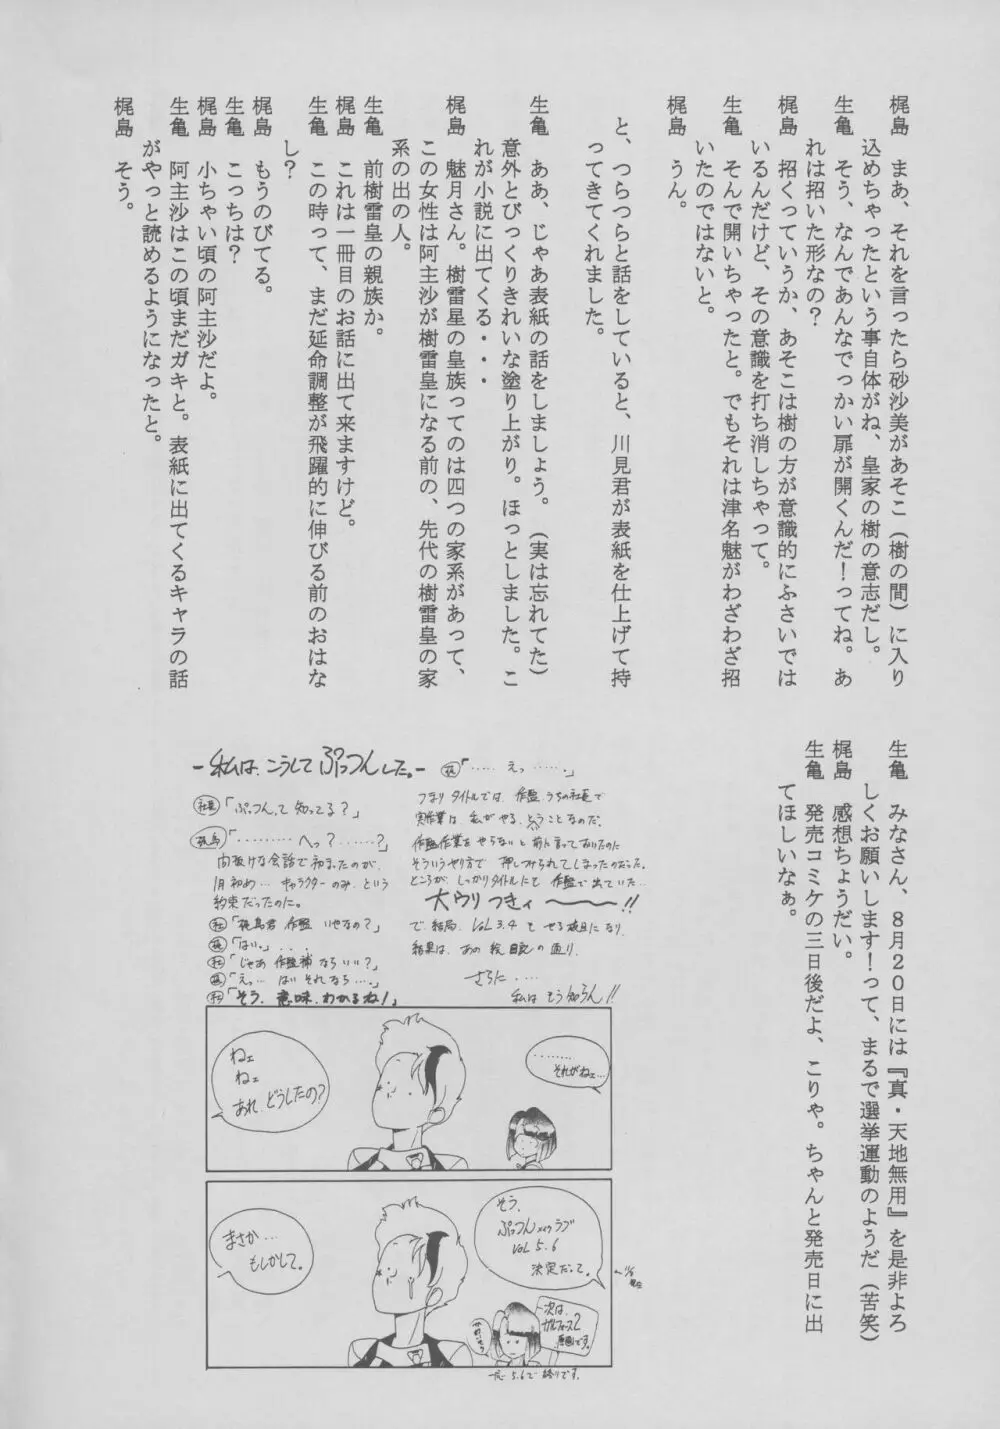 梶島　まあ、それを言ったら砂沙美があそこ（樹の間）に入り
込めちゃったという事自体がね、皇家の樹の意志だし。
生亀　そう、なんであんなでっかい扉が開くんだ！ってね。あ
れは招いた形なの？
梶島　招くっていうか、あそこは樹の方が意識的にふさいでは
いるんだけど、その意識を打ち消しちゃって。
生亀　そんで開いちゃったと。でもそれは津名魅がわざわざ招
いたのではないと。
梶島　うん。
と、つらつらと話をしていると、川見君が表紙を仕上げて持
ってきてくれました。
生亀　ああ、じゃあ表紙の話をしましょう。（実は忘れてた）
意外とびっくりきれいな塗り上がり。ほっとしました。こ
れが小説に出てくる・・・
梶島　魅月さん。樹雷星の皇族ってのは四つの家系があって、
この女性は阿主沙が樹雷皇になる前の、先代の樹雷皇の家
系の出の人。
生亀　前樹雷皇の親族か。
梶島　これは一冊目のお話に出て来ますけど。
生亀　この時って、まだ延命調整が飛躍的に伸びる前のおはな
し？
梶島　もうのびてる。
生亀　こっちは？
梶島　小ちゃい頃の阿主沙だよ。
生亀　阿主沙はこの頃まだガキと。表紙に出てくるキャラの話
がやっと読めるようになったと。
梶島　そう。
生亀　みなさん、８月２０日には『真・天地無用』を是非よろ
しくお願いします！って、まるで選挙運動のようだ（苦笑）
梶島　感想ちょうだい。
生亀　発売コミケの三日後だよ、こりゃ。ちゃんと発売日に出
てほしいなぁ。
-私は、こうしてぷっつんした。-
社長「ぷっつんって知ってる？」
梶島「………へっ？……？」
間抜けな会話で初まったのが、
1月初め… キャラクターのみ という
約束だったのに。
社「梶島君 作監 いやなの？」
梶「はい。」．．．
社「じゃあ 作監補 ならいい？」
梶「えっ… はい それなら…．」
社「そう、意味、わかるね！」
梶「…… えっ……．」
つまり タイトルでは、作監、うちの社長で
実作業は 私がやる、とうことなのだ、
作監作業を やらないと 前に言っておいたのに
そういうやり方で 押しつけられてしまったのだった。
ところが、しっかりタイトルにて 作監で出ていた…
大ウソつきィ〜〜!!
で、結局、Vol 3.4 と
結果は、あの 絵 の 通り、
さらに…．
私は もう知らん!!
ねェ
ねェ
あれ、どうしたの？
………
それがねェ…
まさか…
もしかして。
そう、
ぷっつんメイクラブ
VOL 5.6
決定だって。
次は、
ガルフォース2
原画です。
5.6で 終りです.